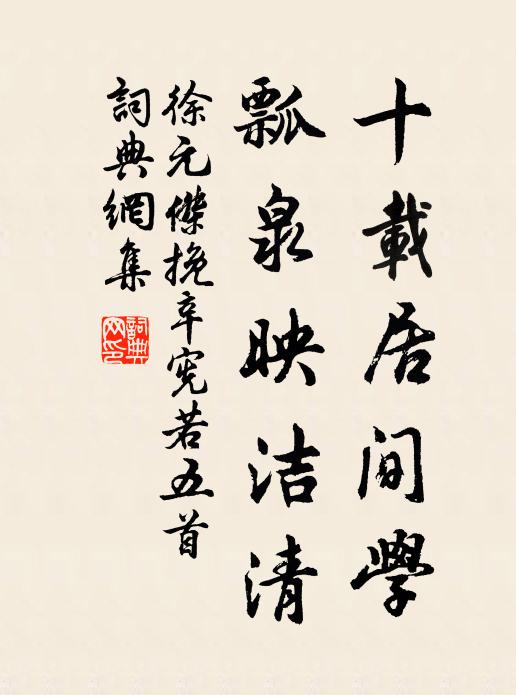 十載居間學
瓢泉映洁清
徐元傑挽辛宪若五首
詞典網集
詞典网印